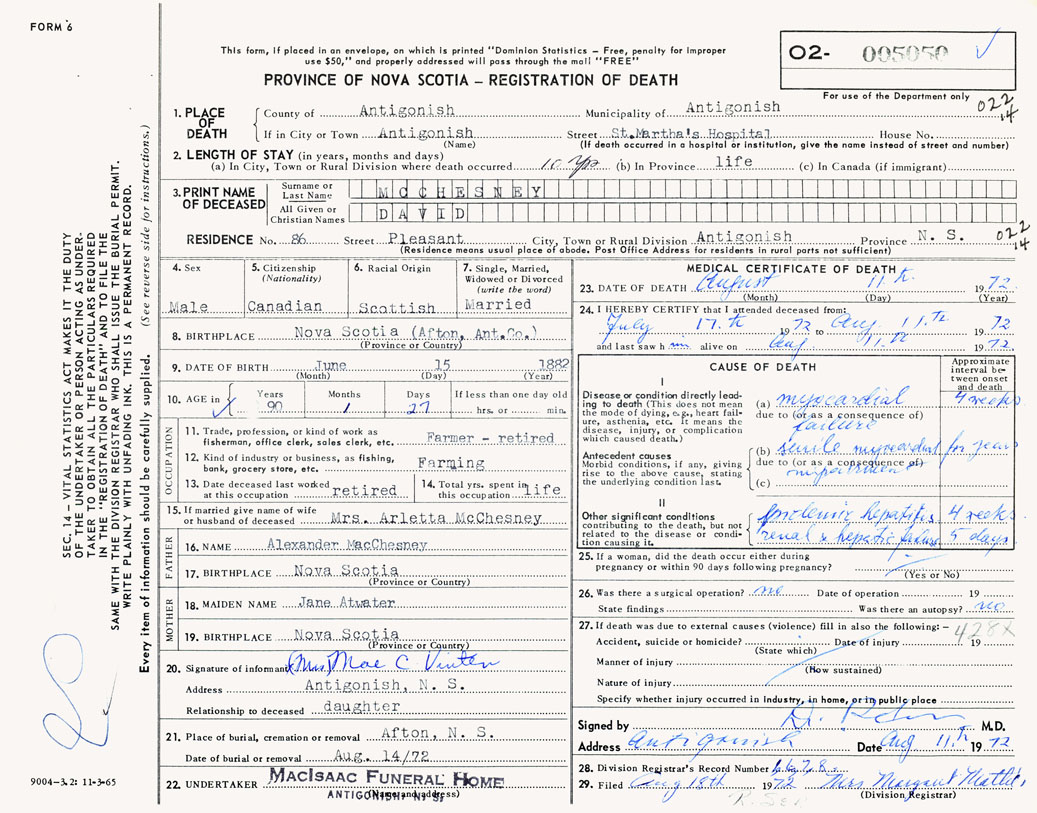 FORM 6
This form, if placed in an envelope, on which is printed "Dominion Statistics – Free, penalty for improper
use $50," and properly addressed will pass through the mail "FREE"
PROVINCE OF NOVA SCOTIA – REGISTRATION OF DEATH
O2- 005050
For use of the Department only
022
14
1. PLACE OF DEATH
County of Antigonish Municipality of Antigonish
If in City or Town Antigonish Street St.Martha's Hospital House No.
(Name) (If death occurred in a hospital or institution, give the name instead of street and number)
2. LENGTH OF STAY (in years, months and days)
(a) In City, Town or Rural Division where death occurred 10 yrs (b) In Province life (c) In Canada (if immigrant)
3. PRINT NAME OF DECEASED
Surname or Last Name MCCHESNEY
All Given or Christian Names DAVID
RESIDENCE No. 86 Street Pleasant City, Town or Rural Division Antigonish Province N. S. 022
14
(Residence means usual place of abode. Post Office Address for residents in rural parts not sufficient)
4. Sex
Male
5. Citizenship
(Nationality)
Canadian
6. Racial Origin
Scottish
7. Single, Married,
Widowed or Divorced
(write the word)
Married
8. BIRTHPLACE Nova Scotia (Afton, Ant.Co.)
(Province or Country)
9. DATE OF BIRTH June 15 1882
(Month) (Day) (Year)
10. AGE in Years Months Days If less than one day old
90 1 27 hrs. or min.
OCCUPATION
11. Trade, profession, or kind of work as
fisherman, office clerk, sales clerk, etc. Farmer - retired
12. Kind of industry or business, as fishing,
bank, grocery store, etc. Farming
13. Date deceased last worked
at this occupation retired
14. Total yrs. spent in
this occupation life
15. If married give name of wife
or husband of deceased Mrs. Arletta McChesney
FATHER
16. NAME Alexander MacChesney
17. BIRTHPLACE Nova Scotia
(Province or Country)
MOTHER
18. MAIDEN NAME Jane Atwater
19. BIRTHPLACE Nova Scotia
(Province or Country)
20. Signature of informant (Mrs) Mae C Vinten
Address Antigonish, N. S.
Relationship to deceased daughter
21. Place of burial, cremation or removal Afton, N. S.
Date of burial or removal Aug. 14/72
22. UNDERTAKER MACISAAC FUNERAL HOME
ANTIGONISH, N. S.
(Name and address)
MEDICAL CERTIFICATE OF DEATH
23. DATE OF DEATH August 11th 1972
(Month) (Day) (Year)
24. I HEREBY CERTIFY that I attended deceased from:
July 17th 1972 to Aug. 11th 1972
and last saw him alive on Aug. 11th 1972.
CAUSE OF DEATH
Approximate
interval be-
tween onset
and death
I
Disease or condition directly lead-
ing to death (This does not mean
the mode of dying, e.g., heart fail-
ure, asthenia, etc. It means the
disease, injury, or complication
which caused death.)
(a) myocardial 4 weeks
due to (or as a consequence of)
failure
Antecedent causes
Morbid conditions, if any, giving
rise to the above cause, stating
the underlying condition last.
(b) senile myocardial for years
due to (or as a consequence of)
(c)
II
Other significant conditions
contributing to the death, but not
related to the disease or condi-
tion causing it.
hepatitis 4 weeks
renal & hepatic failure 5 days
25. If a woman, did the death occur either during
pregnancy or within 90 days following pregnancy?
(Yes or No)
26. Was there a surgical operation? no Date of operation 19
State findings Was there an autopsy? no
27. If death was due to external causes (violence) fill in also the following:– 428X
Accident, suicide or homicide? Date of injury 19
(State which)
Manner of injury
(How sustained)
Nature of injury
Specify whether injury occurred in Industry, in home, or in public place
Signed by M.D.
Address Antigonish Date Aug 11th 1972
28. Division Registrar's Record Number 6678
29. Filed Aug 18th 1972 Mrs Margaret
(Division Registrar)
SEC. 14 – VITAL STATISTICS ACT MAKES IT THE DUTY
OF THE UNDERTAKER OR PERSON ACTING AS UNDER-
TAKER TO OBTAIN ALL THE PARTICULARS REQUIRED
IN THE "REGISTRATION OF DEATH" AND TO FILE THE
SAME WITH THE DIVISION REGISTRAR WHO SHALL ISSUE THE BURIAL PERMIT.
WRITE PLAINLY WITH UNFADING INK. THIS IS A PERMANENT RECORD.
Every item of information should be carefully supplied. (See reverse side for instructions.)
9004–3.2: 11-3-65